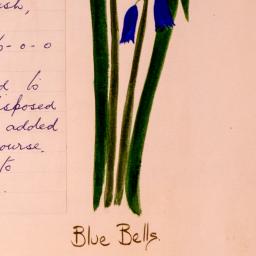 b-o-o
to
disposed
added
course.
to
Blue Bells.